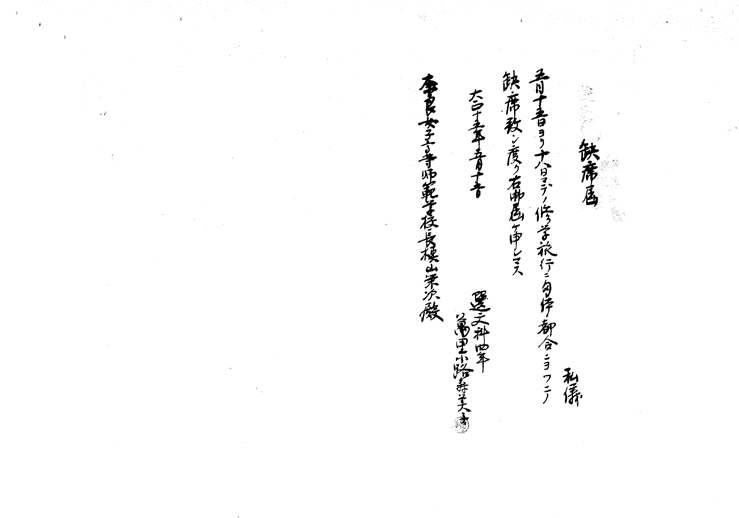 缺席届
私儀
五月十五日ヨリ十八日マデノ修学旅行ニ身体ノ都合ニヨリ
缺席致シ度ク右御届ケ申シマス
大正十五年五月十日
選文科四年
萬里小路
奈良女子高等師範学校長槇山栄次殿